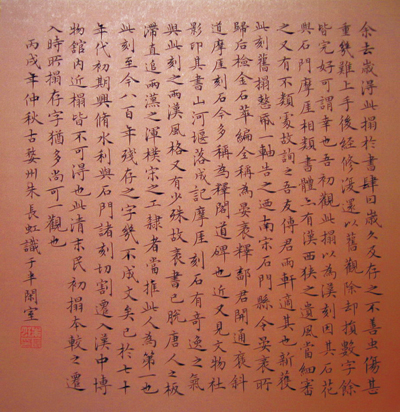 余去歲得此搨於書肆因歲久及存之不善虫傷甚
重幾難上手後經修潢還以舊觀除却損數字餘
皆完好可謂幸也吾初觀此搨以為漢刻因其石花
與石門摩崖相類書體亦有漢西狹之遺風當細審
之又有不類處故詢之吾友傅君而軒適其也新獲
此刻舊搨整張一軸告之西南宋石門縣令晏袤所
歸后檢金石萃編全稱為晏袤釋鄐君開通褒斜
道摩崖刻石今多稱為釋閣道碑也近又見文物社
影印其書山河堰落成記摩崖刻石有奇逸之氣
與此刻之兩漢風格又有少殊故袤書已脫唐人之板
滯直追兩漢之渾樸宋之工隸者當推此人為第一也
此刻至今八百年殘存之字幾不成文矣已於七十
年代初期興修水利與石門諸刻切割遷入漢中博
物館內近搨皆不可得也此清末民初搨本較之遷
入時所搨存字猶多尚可一觀也
丙戌年仲秋古婺州朱長虹識于半閑室